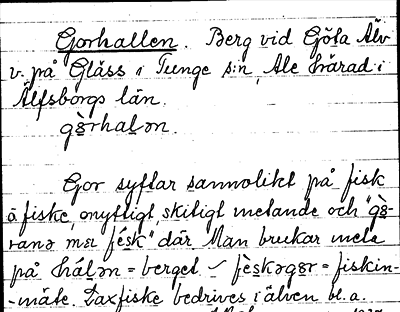 Gorhallen. Berg vid Göta Älv
v. på Gläss i Tunge s:n, Ale härad i
Älfsborgs län.
gò̱rhaḷən.
Gor syftar sannolikt på fisk
å fiske, onyttigt, skitigt metande och "gò̱-
ranə mɛ fésk" där Man bruka meta
på háḷən = berget ✓ fèskəgər = fiskin-
-mäte. Laxfiske bedrives i älven bl.a.